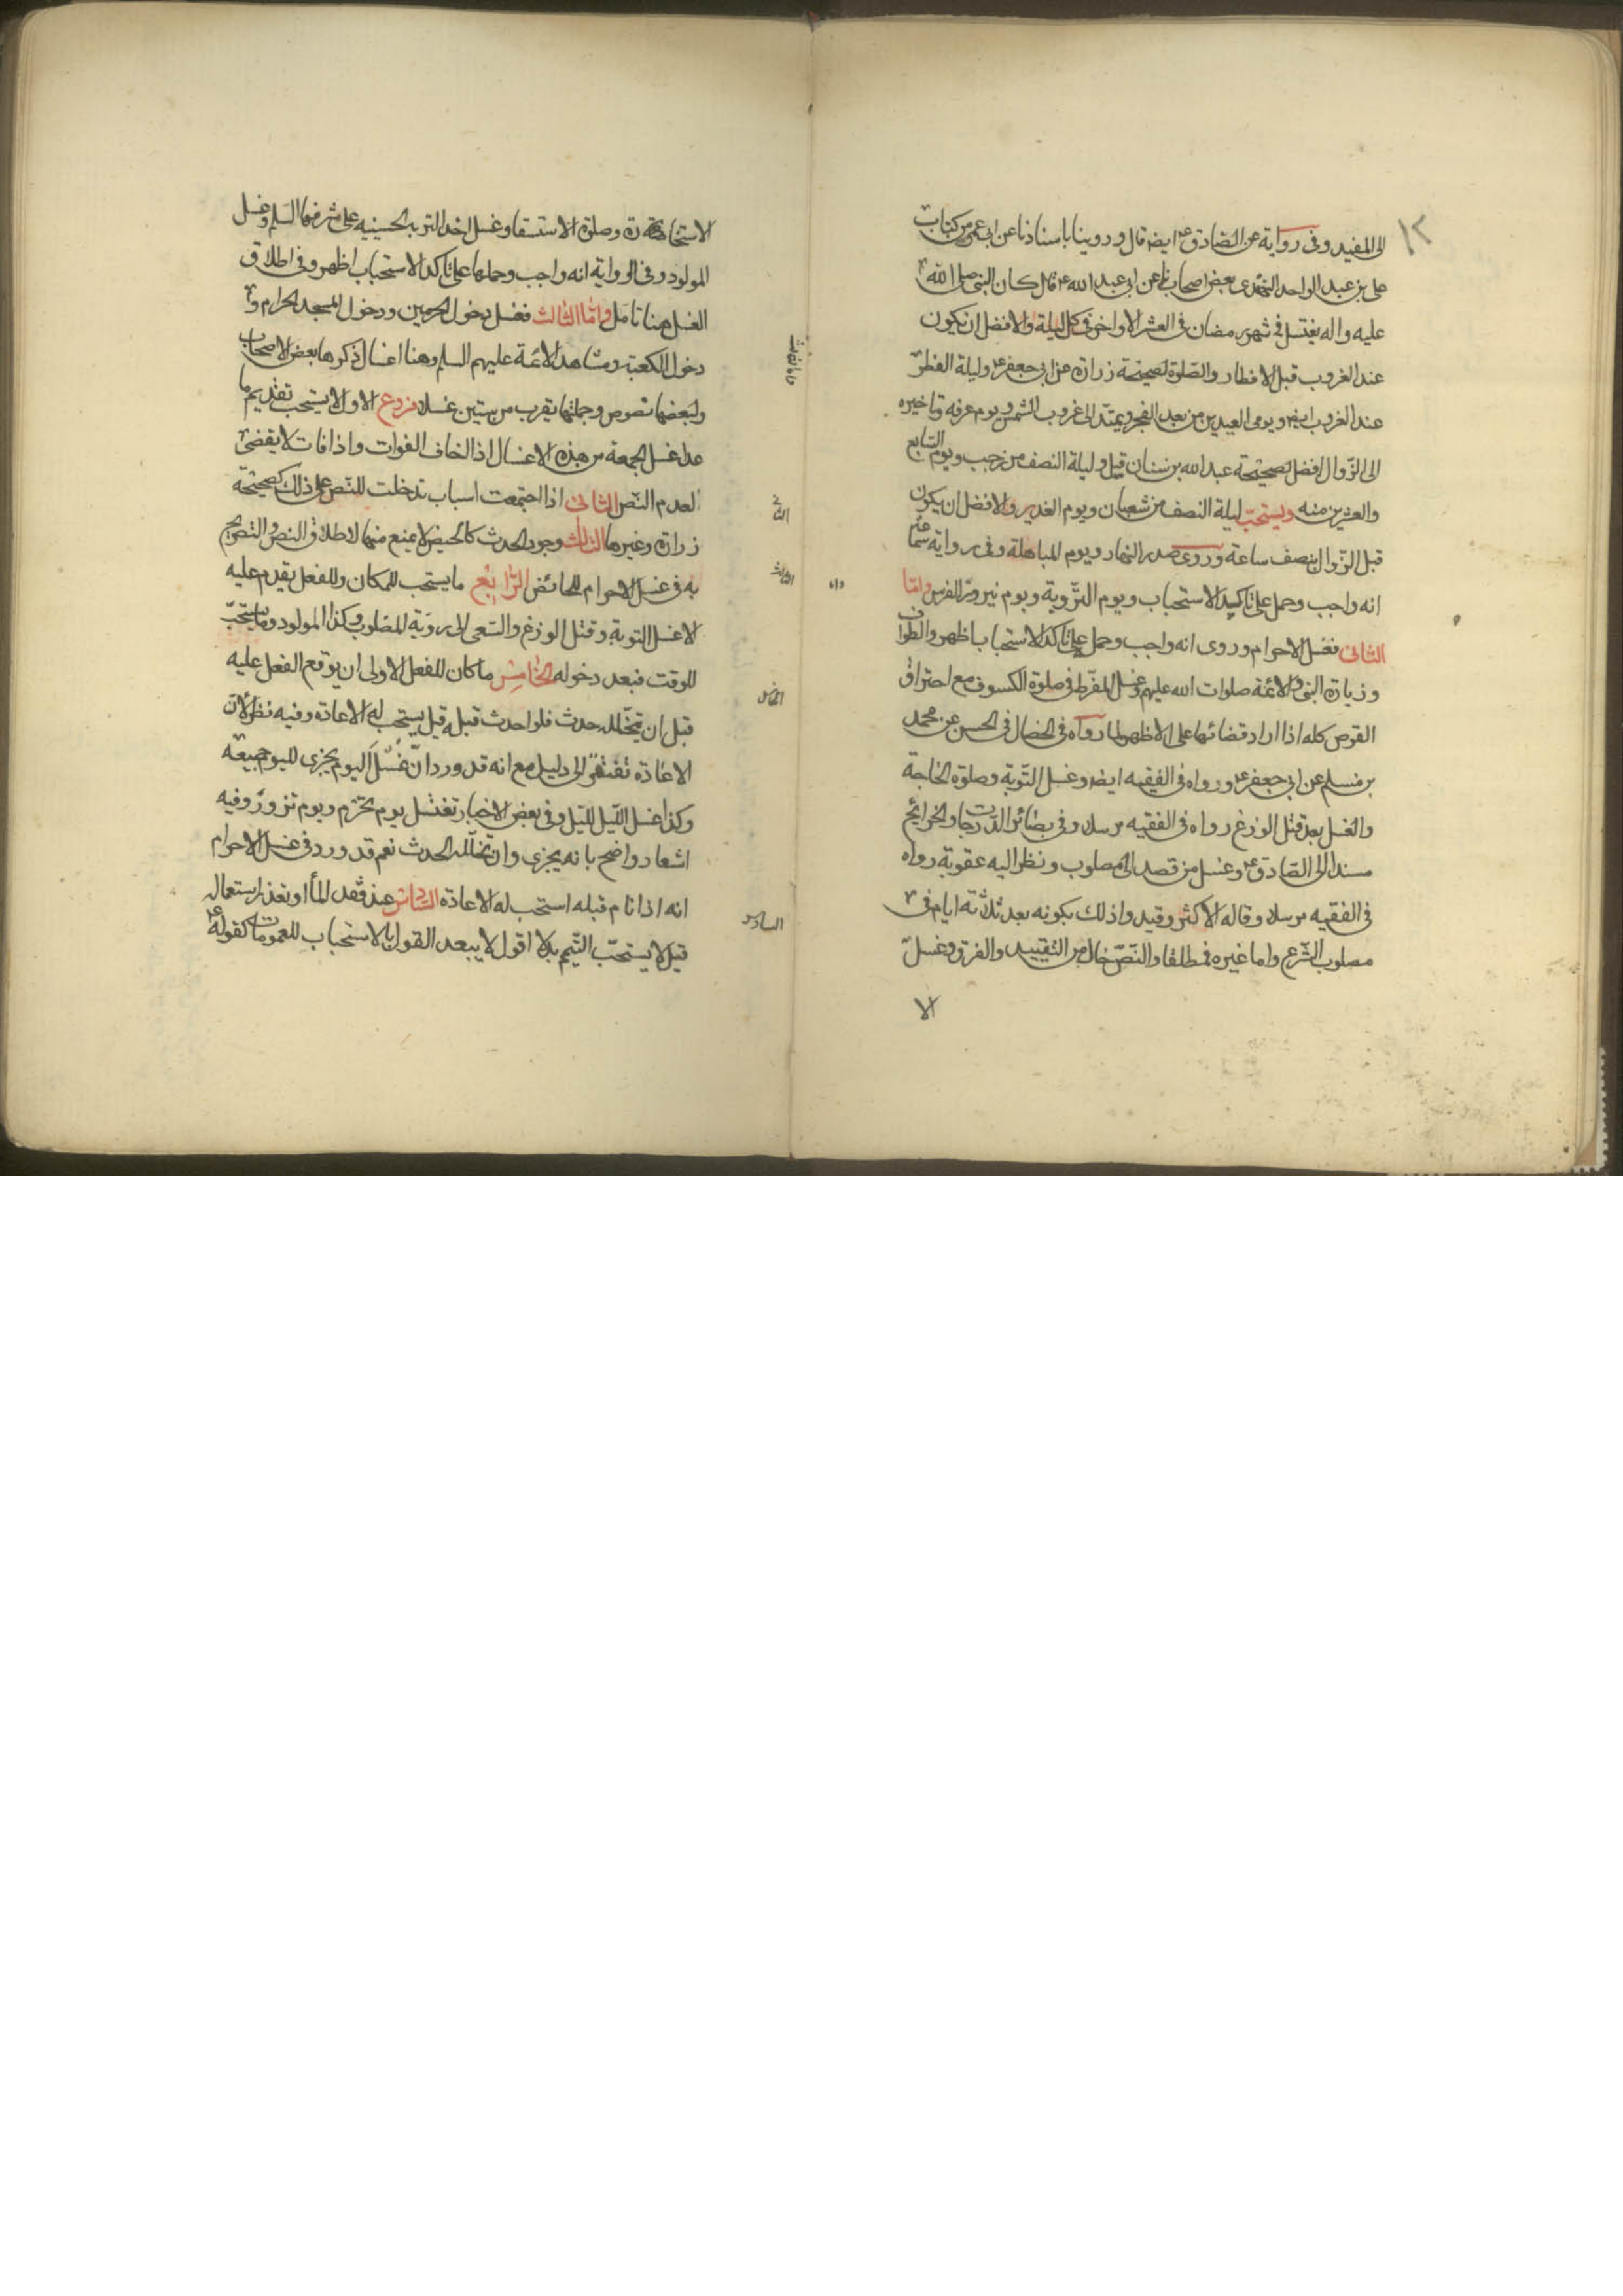 ١٢
الى المفيد وفى رواية عن الصادق ع ايضا قال وروينا باسنادنا عن ابى عمير من كتاب
على بن عبد الواحد النهدى بعض اصحابنا عن ابى عبد الله ع قال كان النبى صلى الله
عليه واله يغتسل فى شهر رمضان فى العشر الاواخر فى كل ليلة والافضل ان يكون
عند الغروب قبل الافطار والصلوة لصحيحة زرارة عن ابى جعفر ع وليلة الفطر
عند الغروب ايضا ويومى العيدين من بعد الفجر ويمتد الى غروب الشمس ويوم عرفه وتاخيره
الى الزوال افضل لصحيحة عبد الله بن سنان قيل وليلة النصف من رجب ويوم السابع
والعشرين منه ويستحب ليلة النصف من شعبان ويوم الغدير والافضل ان يكون
قبل الزوال بنصف ساعة وروى صدر النهار ويوم المباهلة وفى رواية سماعة
انه واجب وحمل على تاكيد الاستحباب ويوم التروية ويوم نيروز الفرس واما
الثانى فغسل الاحرام وروى انه واجب وحمل على تاكد الاستحباب اظهر والطواف
وزيارة النبى والائمة صلوات الله عليهم وغسل المفرط فى صلوة الكسوف مع احتراق
القرص كله اذا اراد قضائها على الاظهر لما رواه فى الخصال فى الحسن عن محمد
بن مسلم عن ابى جعفر ع ورواه فى الفقيه ايضا وغسل التوبة وصلوة الحاجة
والغسل بعد قتل الوزغ رواه فى الفقيه مرسلا وفى بصائر الدرجات والخرائج
مسندا الى الصادق ع وغسل من قصد الى مصلوب ونظر اليه عقوبة رواه
فى الفقيه مرسلا وقاله الاكثر وقيد واذلك بكونه بعد ثلاثة ايام فى
مصلوب الشرع واما غيره فمطلقا والنص خال من التقييد والفرق وغسل
الا
الاستخارة وصلوة الاستسقا وغسل اخذ التربة الحسينيه على مشرفها السلم وغسل
المولود وفى الرواية انه واجب وحملها على تاكد الاستحباب اظهر وفى اطلاق
الغسل هنا تامل واما الثالث فغسل دخول الحرمين ودخول المسجد الحرام و
دخول الكعبة ومشاهد الائمة عليهم السلم وهنا اغسال ذكرها بعض الاصحاب
ولبعضها نصوص وجملتها يقرب من ستين غسلا فروع الاول لا يستحب تقديم ما
عدا غسل الجمعة من هذه الاغسال اذا خاف الفوات واذا فات لا يقضى
لعدم النص الثانى اذا اجتمعت اسباب تدخلت للنص على ذلك كصحيحة
زرارة وغيرها الثالث وجود الحدث كالحيض لا يمنع منها لاطلاق النص والتصريح
به فى غسل الاحرام للحائض الرابع ما يستحب للمكان وللفعل يقدم عليه
لا غسل التوبة وقتل الوزغ والسعى الى روية المصلوب وكذا المولود وما يستحب
للوقت فبعد دخوله الخامس ما كان للفعل الاولى ان يوقع الفعل عليه
قبل ان يتخلله حدث فلو احدث قبله قيل يستحب له الاعادة وفيه نظر لان
الاعادة تفتقر الى دليل مع انه قد ورد ان غسل اليوم يجزى لليوم جميعه
وكذا غسل الليل لليل وفى بعض الاخبار تغتسل يوم تحرم ويوم تزور وفيه
اشعار واضح بانه يجزى وان تخلله الحدث نعم قد ورد فى غسل الاحرام
انه اذا نام قبله استحب له الاعادة السادس عند فقد الماء او تعذر استعماله
قيل لا يستحب التيمم بدلا اقول لا يبعد القول بالاستحباب للعمومات كقوله ع
الثالث
الخامس
السادس